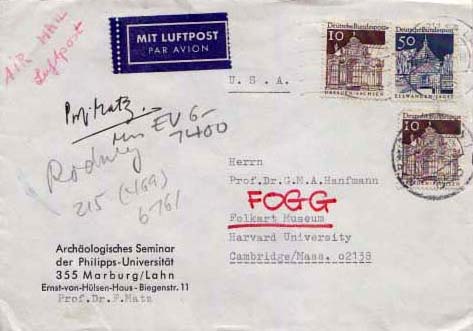 AIR MAIL
Luftpost
MIT LUFTPOST
PAR AVION
Deutsche Bundespost
10
Deutsche Bundespost
50
ELLWANGEN/JAGST
Deutsche Bundespost
10
U.S.A.
Prof. Matz
EU 6-
7400
Rodney
215
6761
Herrn
Prof.Dr.G.M.A.Hanfmann
FOGG
Folkart Museum
Harvard University
Cambridge/Mass. o2138
Archäologisches Seminar
der Philipps-Universität
355 Marburg/Lahn
Ernst-von-Hülsen-Haus - Biegenstr. 11
Prof.Dr.F.Matz